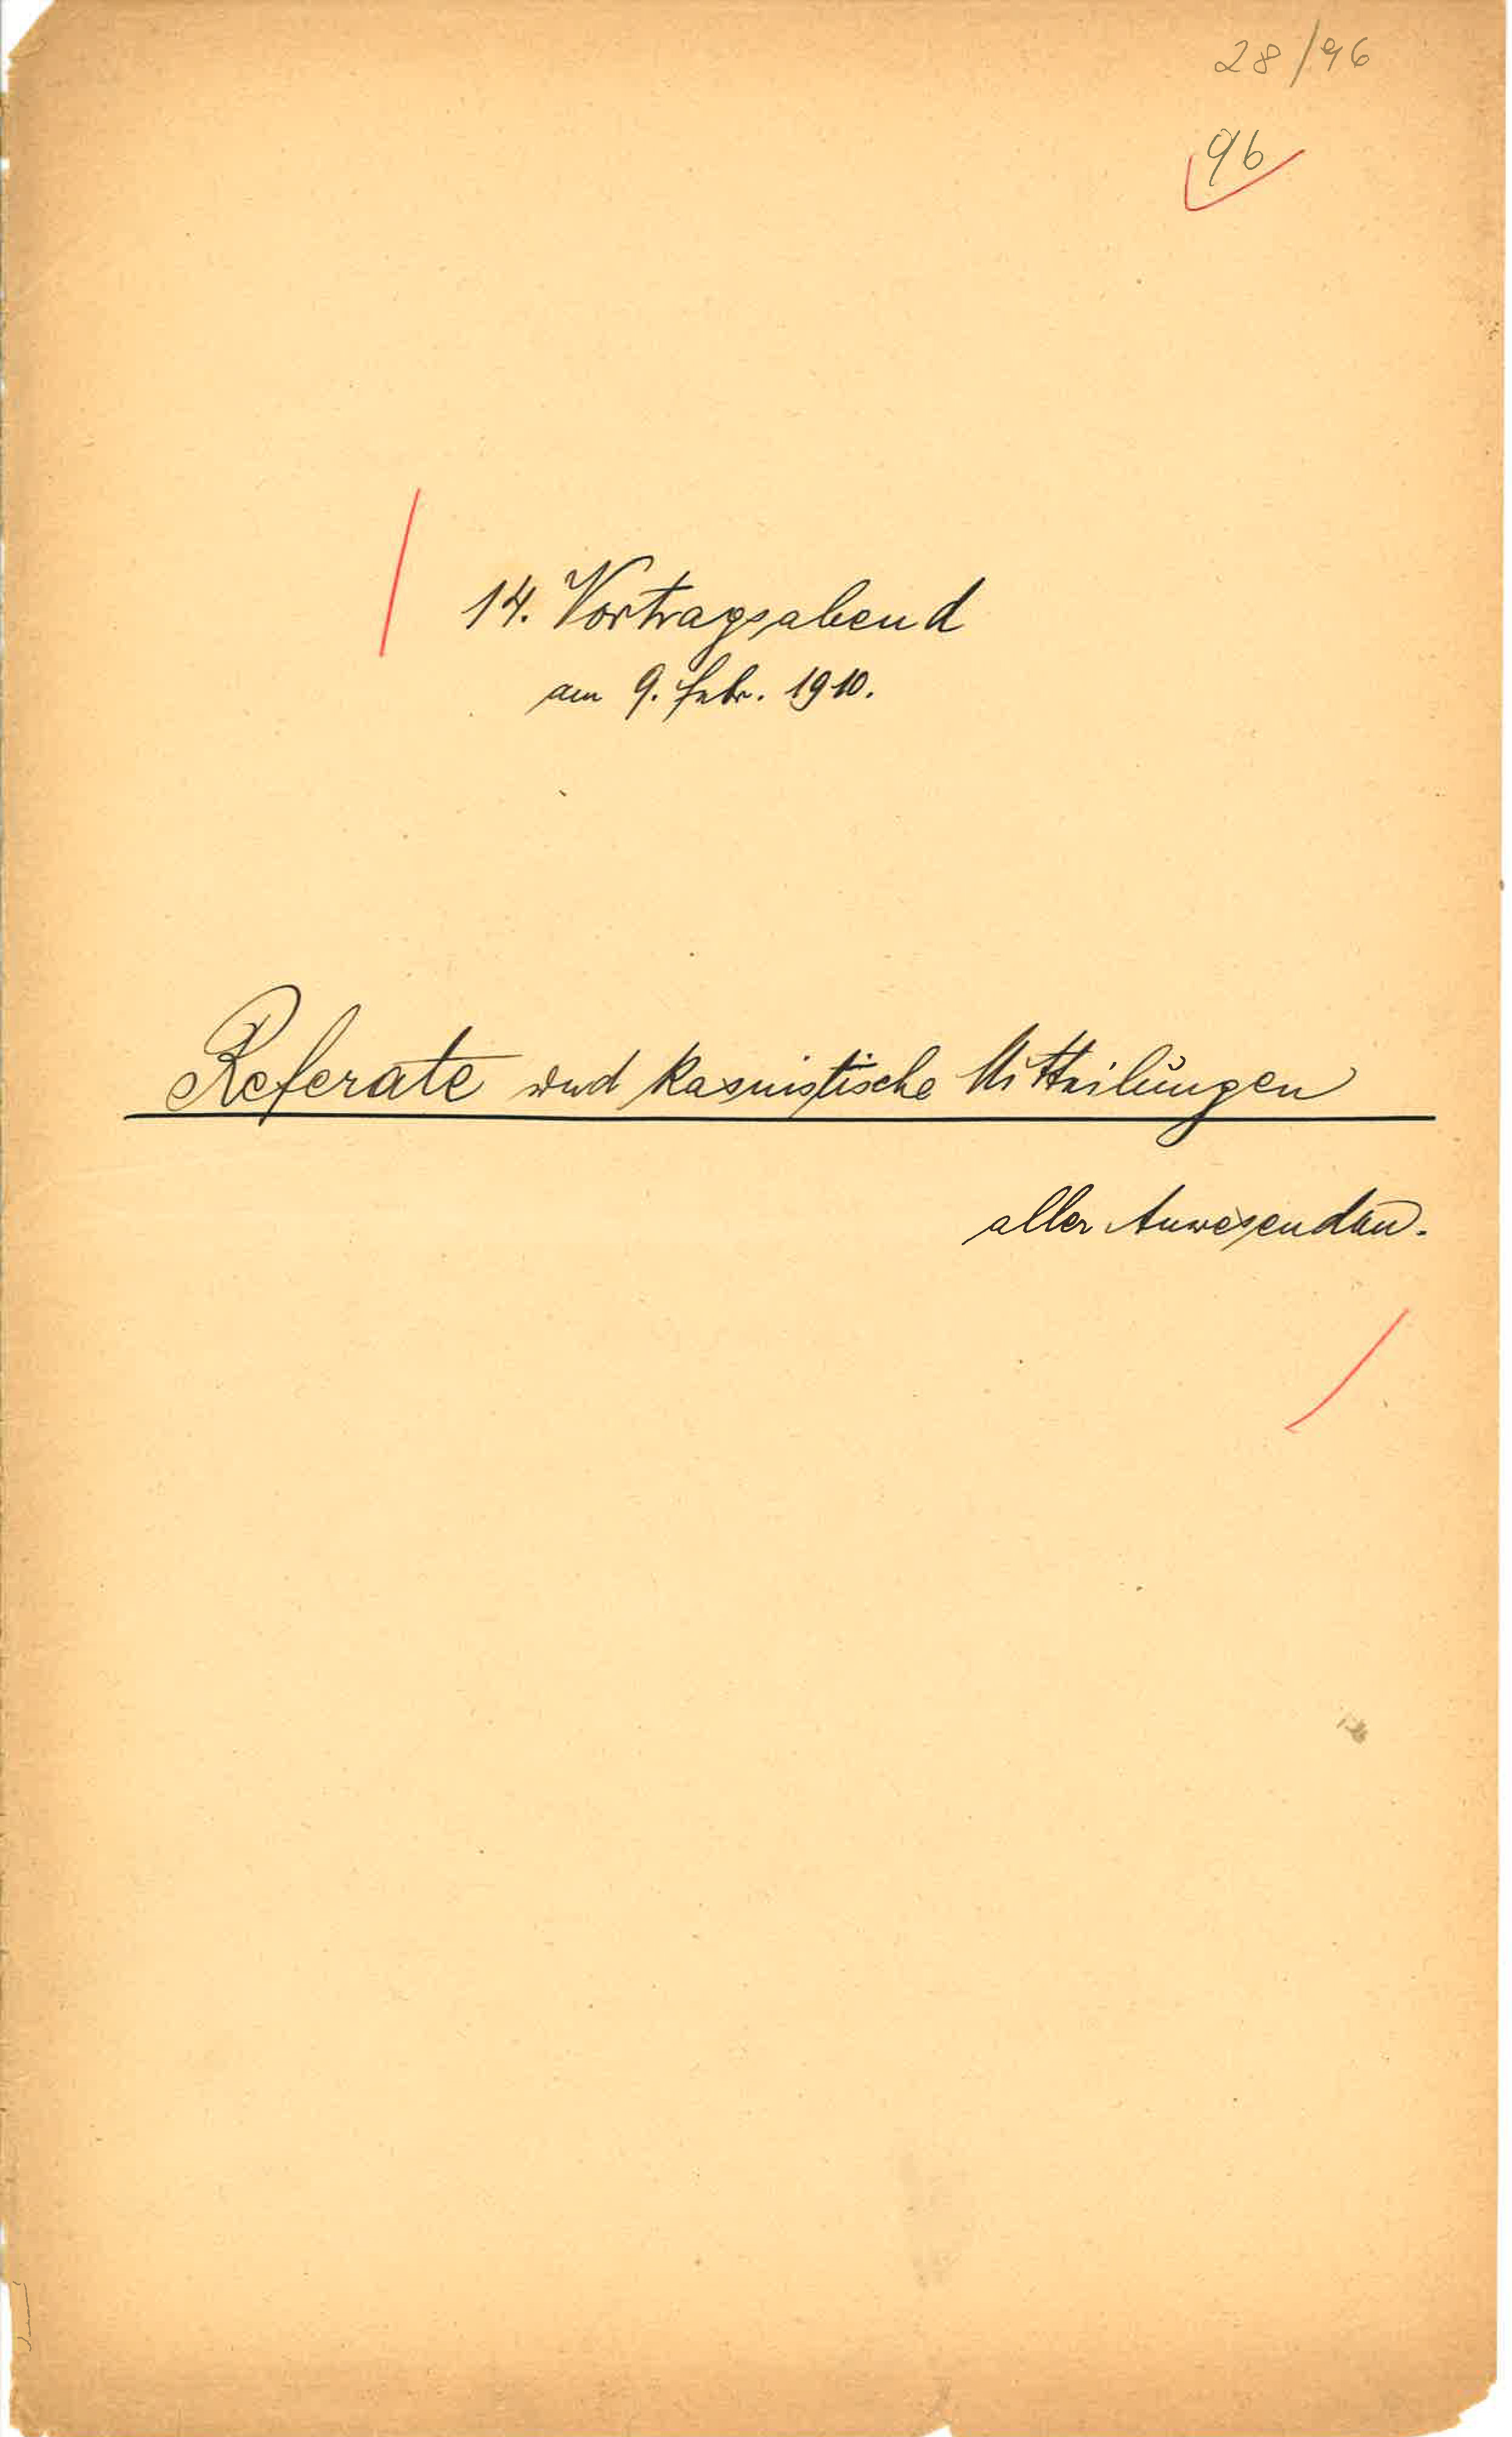 28/96
96
14. Vortragsabend
am 9. Febr. 1910.
Referate und kasuistische Mitteilungen
aller Anwesenden.